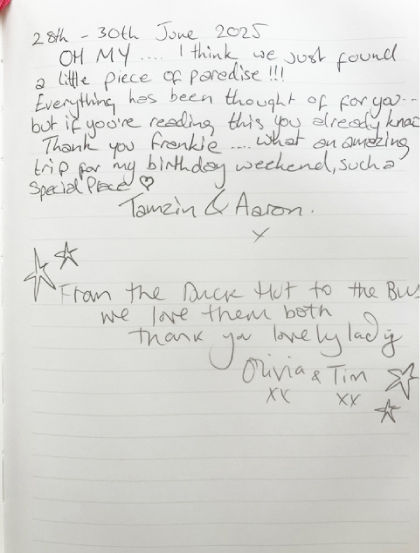 28th - 30th June 2025
OH MY .... I think we just found
a little piece of paradise !!!
Everything has been thought of for you...
but if you're reading this you already know
Thank you Frankie .... what an amazing
trip for my birthday weekend, such a
Special Place ♡
Tamzin & Aaron.
x
From the Duck Hut to the Bus
we love them both
thank you lovely lady
Olivia & Tim
xx xx